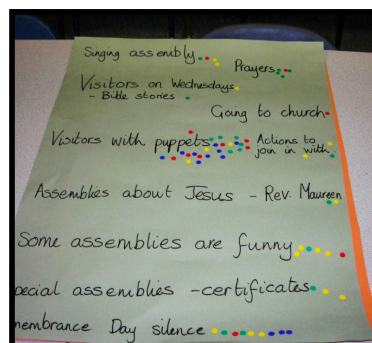 Singing assembly
Prayers
Visitors on Wednesdays
- Bible stories
Going to church
Visitors with puppets
Actions to
join in with
Assemblies about Jesus - Rev. Maureen
Some assemblies are funny
pecial assemblies - certificates
membrance Day silence